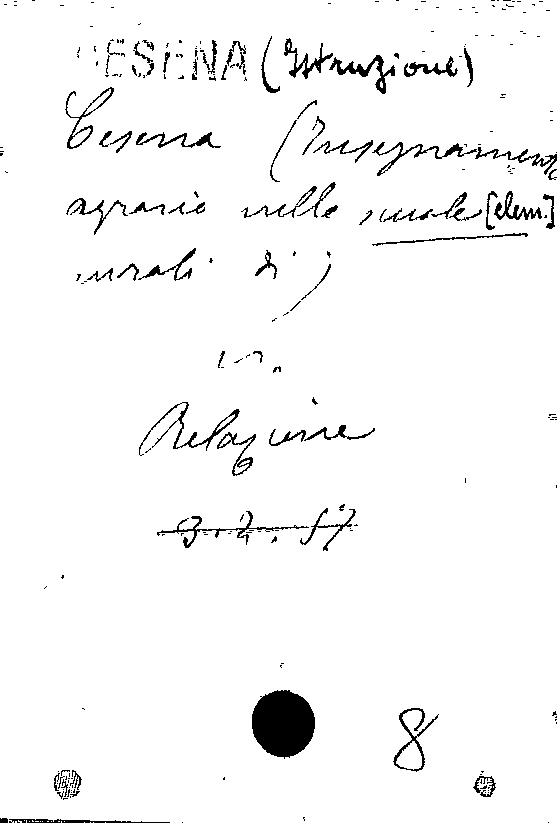 CESENA (Istruzione)
Cesena (Insegnamento
agrario nelle scuole [elem.]
rurali di)
in
Relazione
3.2.57
8